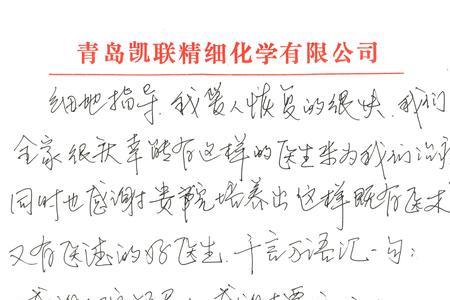 青岛凯联精细化学有限公司
细地指导.我爱人恢复的很快.我们
全家很庆幸能有这样的医生来为我们治疗
同时也感谢贵院培养出这样既有医术
又有医德的好医生.千言万语汇一句: